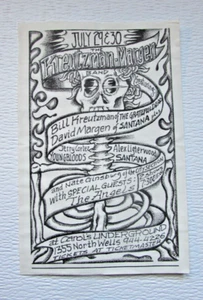 JULY 29 & 30
Kreutzman-Margen
BAND
Bill Kreutzman of THE GRATEFUL DEAD
David Margen of SANTANA
Jerry Corbitt
YOUNGBLOODS
Alex Ligertwood
SANTANA
and Nate Ginsburg
with SPECIAL GUESTS:
The Angels
at Carol's UNDERGROUND
1355 North Wells 944-4226
TICKETS AT TICKETMASTER